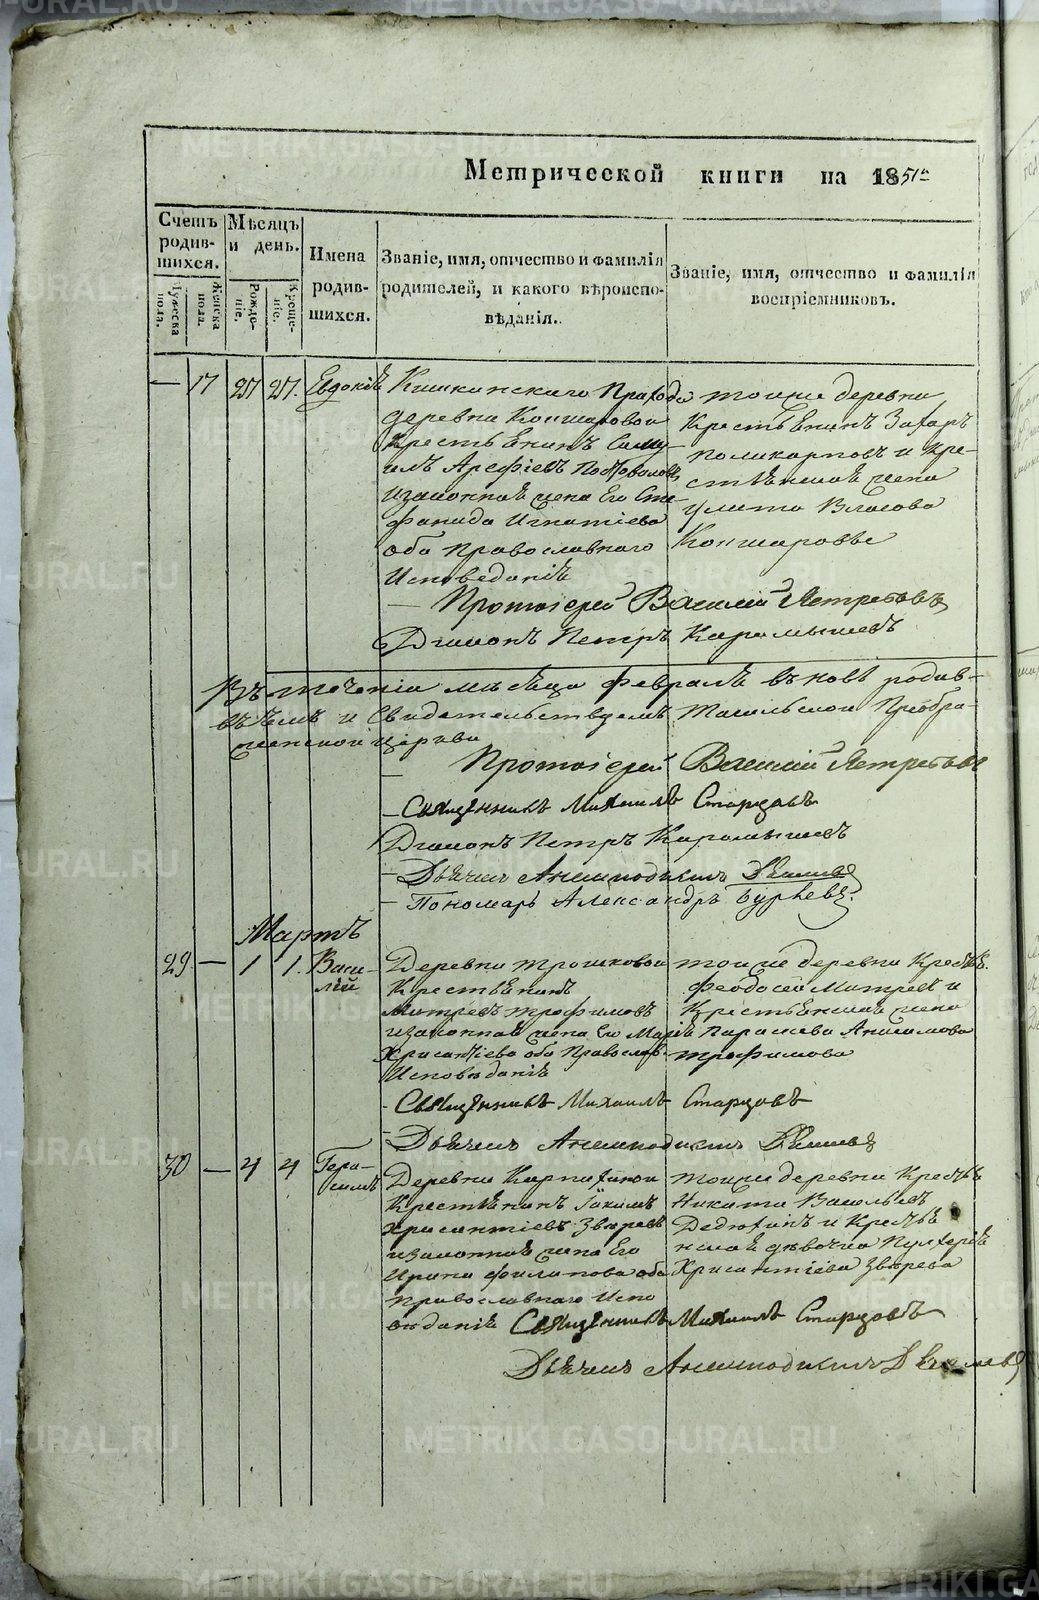 Метрической книги на 1851й
Счетъ родив-шихся.
Мужеска пола.
Женска пола.
Мѣсяцъ и день.
Рожде-ніе.
Креще-ніе.
Имена родив-шихся.
Званіе, имя, отчество и фамилія родителей, и какого вѣроиспо-вѣданія.
Званіе, имя, отчество и фамилія воспріемниковъ.
— 17 27 27. Евдокія
Кишкинскаго Прихода
деревни Коншаровой
Крестьянинъ Саму-
илъ Арефіевъ
изаконная жена Его Сте-
фанида Игнатіева
оба Православнаго
Исповеданія
тоиже деревни
Крестьянинъ Захаръ
Поликарповъ и кре-
стьянская жена
Улита Власова
Коншаровы
— Протоіерей Василій Ястребовъ
Діаконъ Петръ Карамышевъ
Въ теченіи мѣсяца Февраля
и Свидетельствуемъ Тагильской Преобра-
женской церкви
— Протоіерей Василій Ястребовъ
— Священникъ Михаилъ Старцовъ
Діаконъ Петръ Карамышевъ
— Дьячекъ
— Пономарь Александръ
Мартъ
29 — 1 1. Васи-
лій
Деревни Трошковой
Крестьянинъ
Митрей Трофимовъ
изаконная жена Его Марія
Хрисанфіева оба Православ.
Исповѣданія
тоиже деревни Кресть.
Феодосей Митрев и
Крестьянская жена
Парасиева Анисимова
Трофимова
- Священникъ Михаилъ Старцовъ
- Дьячекъ
30 — 4 4 Гера-
симъ
Деревни
Крестьянинъ Іакимъ
Хрисантіевъ Зверевъ
изаконная жена Его
Ирина Филипова оба
Православнаго Испо
ведания
тоиже деревни Крестья
Никита Васильевъ
Дедюхинъ и Крестья
нская дѣвочка Пулхерія
Хрисантіева Зверева
Священникъ Михаилъ Старцовъ
Дьячекъ
METRIKI.GASO-URAL.RU